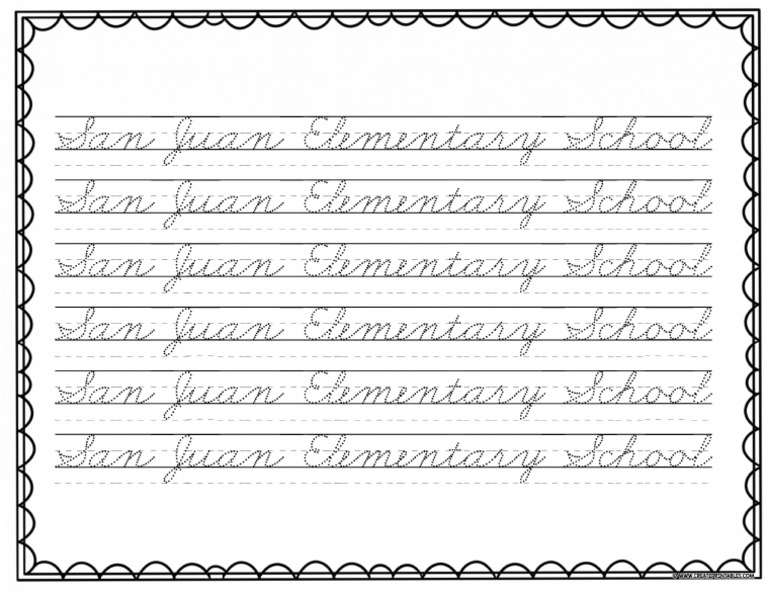 San Juan Elementary School
San Juan Elementary School
San Juan Elementary School
San Juan Elementary School
San Juan Elementary School
San Juan Elementary School